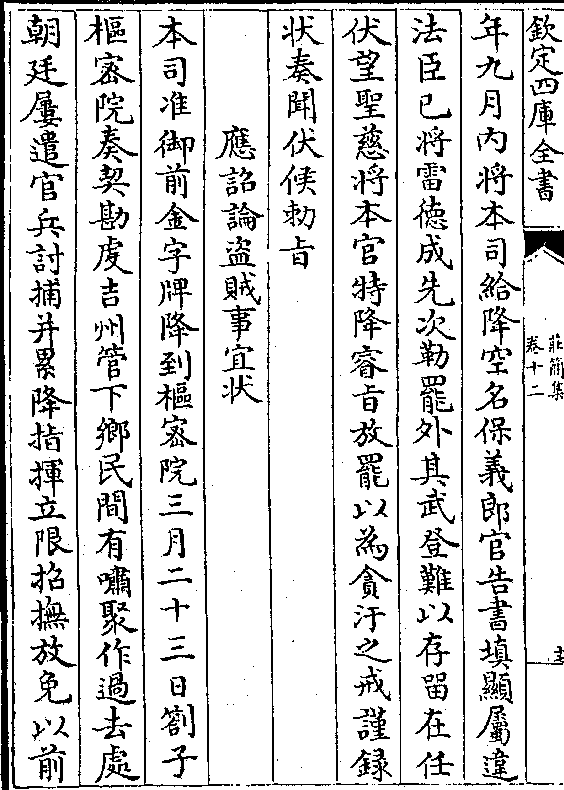 欽定四庫全書
莊簡集
卷十二
年九月內將本司給降空名保義郎官告書填顯屬違
法臣已將雷德成先次勒罷外其武登難以存留在任
伏望聖慈將本官特降睿㫖放罷以為貪汙之戒謹錄
狀奏聞伏候勅㫖
應詔論盜賊事宜狀
本司准御前金字牌降到樞宻院三月二十三日劄子
樞宻院奏契勘䖍吉州管下鄉民間有嘯聚作過去處
朝廷屢遣官兵討捕并累降指揮立限招撫放免以前